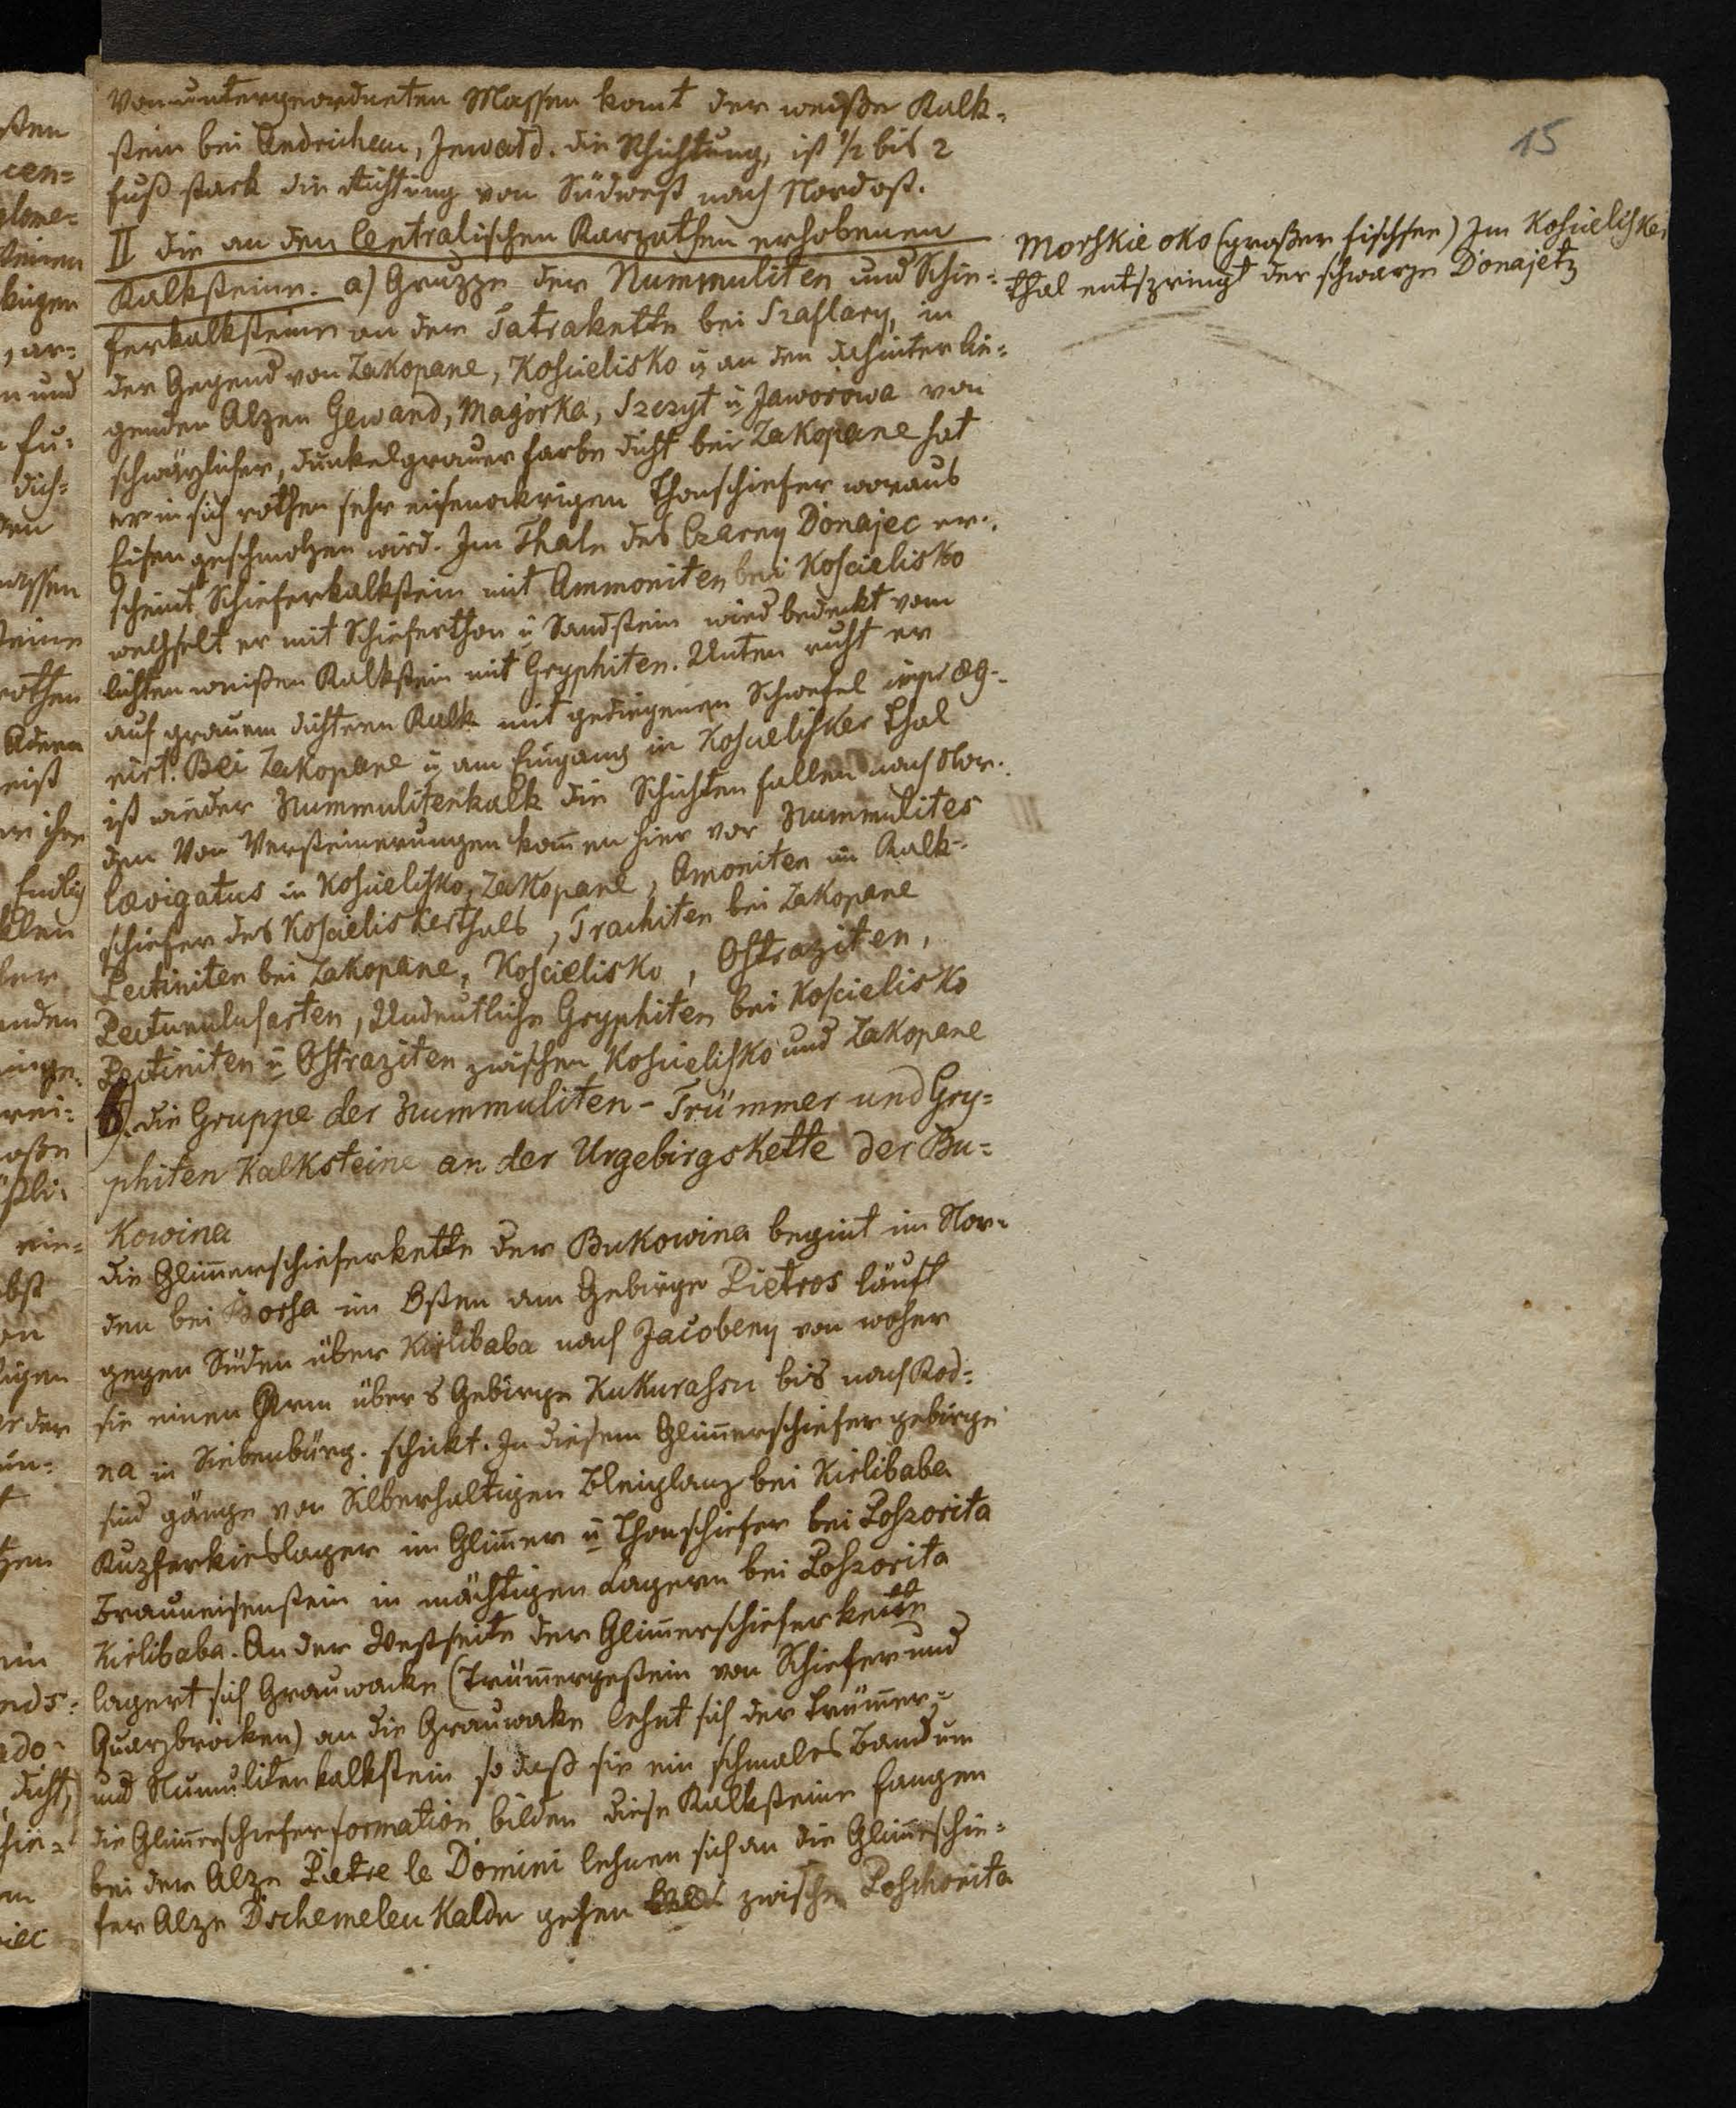 15
Von untergeordneten Massen komt der weiße Kalk-
stein bei Andrichau, Inwald. die Schichtung, ist 1/2 bis 2
fuß stark die Richtung von Südwest nach Nordost.
II die an den Centralischen Karpathen erhobenen
Kalksteine. a) Gruppe der Nummuliten und Schie-
ferkalksteine an der Tatrakette bei Szaflary, in
der Gegend von Zakopane, Koscielisko u an den dahinter lie-
genden Alpen Gewand, Magórka, Szczyt u Jaworowa von
schwärzlicher, dunkelgrauer farbe dicht bei Zakopane hat
er in sich rothen sehr eisenockrigen Thonschiefer woraus
Eisen geschmolzen wird. Im Thale des Czarny Donajec er-
scheint Schieferkalkstein mit Ammoniten bei Koscielisko
wechselt er mit Schieferthon u Sandstein wird bedeckt vom
lichten weißen Kalkstein mit Gryphiten. Unten ruht er
auf grauem dichteren Kalk mit gediegenen Schwefel impræg-
nirt. Bei Zakopane u am Eingang in Koscielisker Thal
ist wieder Nummulitenkalk die Schichten fallen nach Nor-
den Von Versteinerungen kom̅en hier vor Nummulites
lævigatus in Koscielisko, Zakopane, Amoniten im Kalk-
schiefer des Koscieliskerthals, Trachiten bei Zakopane
Pectiniten bei Zakopane, Koscielisko, Ostraziten,
Pectunculusarten, Undeutliche Gryphiten bei Koscielisko
Pectiniten u Ostraziten zwischen Koscielisko und Zakopane
b). die Gruppe der Nummuliten-Trümmer und Gry=
phiten Kalksteine an der Urgebirgskette der Bu=
kowina
die Glim̅erschieferkette der Bukowina begint im Nor-
den bei Borsa im Osten am Gebirge Pietros läuft
gegen Süden über Kirlibaba nach Jacobeny von woher
sie einen Arm übers Gebirge Kukurassu bis nach Rod=
na in Siebenbürg. schickt. In diesem Glim̅erschiefergebirge
sind gänge von Silberhaltigen Bleiglanz bei Kirlibaba
Kupferkieslager im Glim̅er u Thonschiefer bei Poszorita
Brauneisenstein in mächtigen Lagern bei Poszorita
Kirlibaba. An der Westseite der Glim̅erschieferkette
lagert sich Grauwacke (Trüm̅ergestein von Schiefer und
Quarzbrocken) an die Grauwake lehnt sich der Trüm̅er=
und Num̅ulitenkalkstein so daß sie ein schmales Band um
die Glim̅erschieferformation bilden diese Kalksteine fangen
bei der Alpe Pietre le Domini lehnen sich an die Glim̅erschie=
fer Alpe Dschemeleu Kaldu gehen zwischen Poschorita
Morskie oko (großer fischsee) Im Koscielisker
thal entspringt der schwarze Donajetz